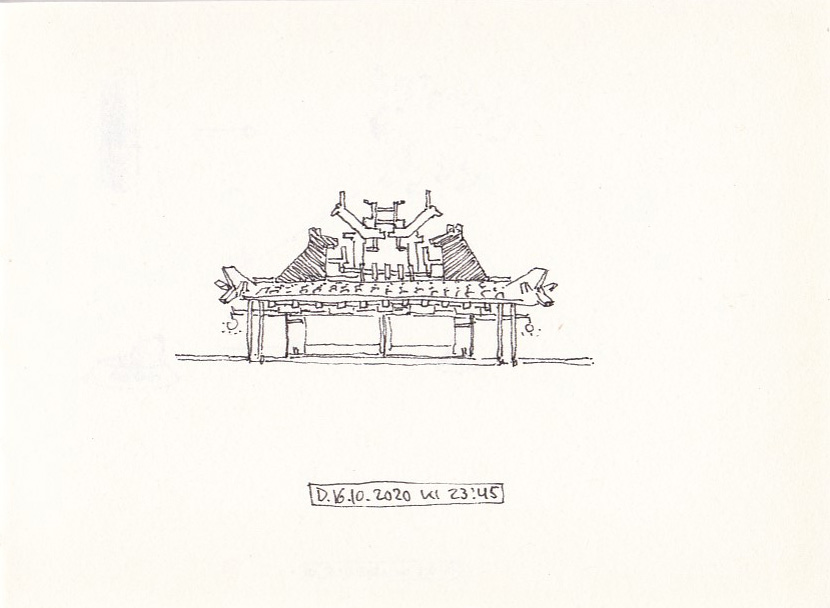 D. 16.10.2020 kl 23:45